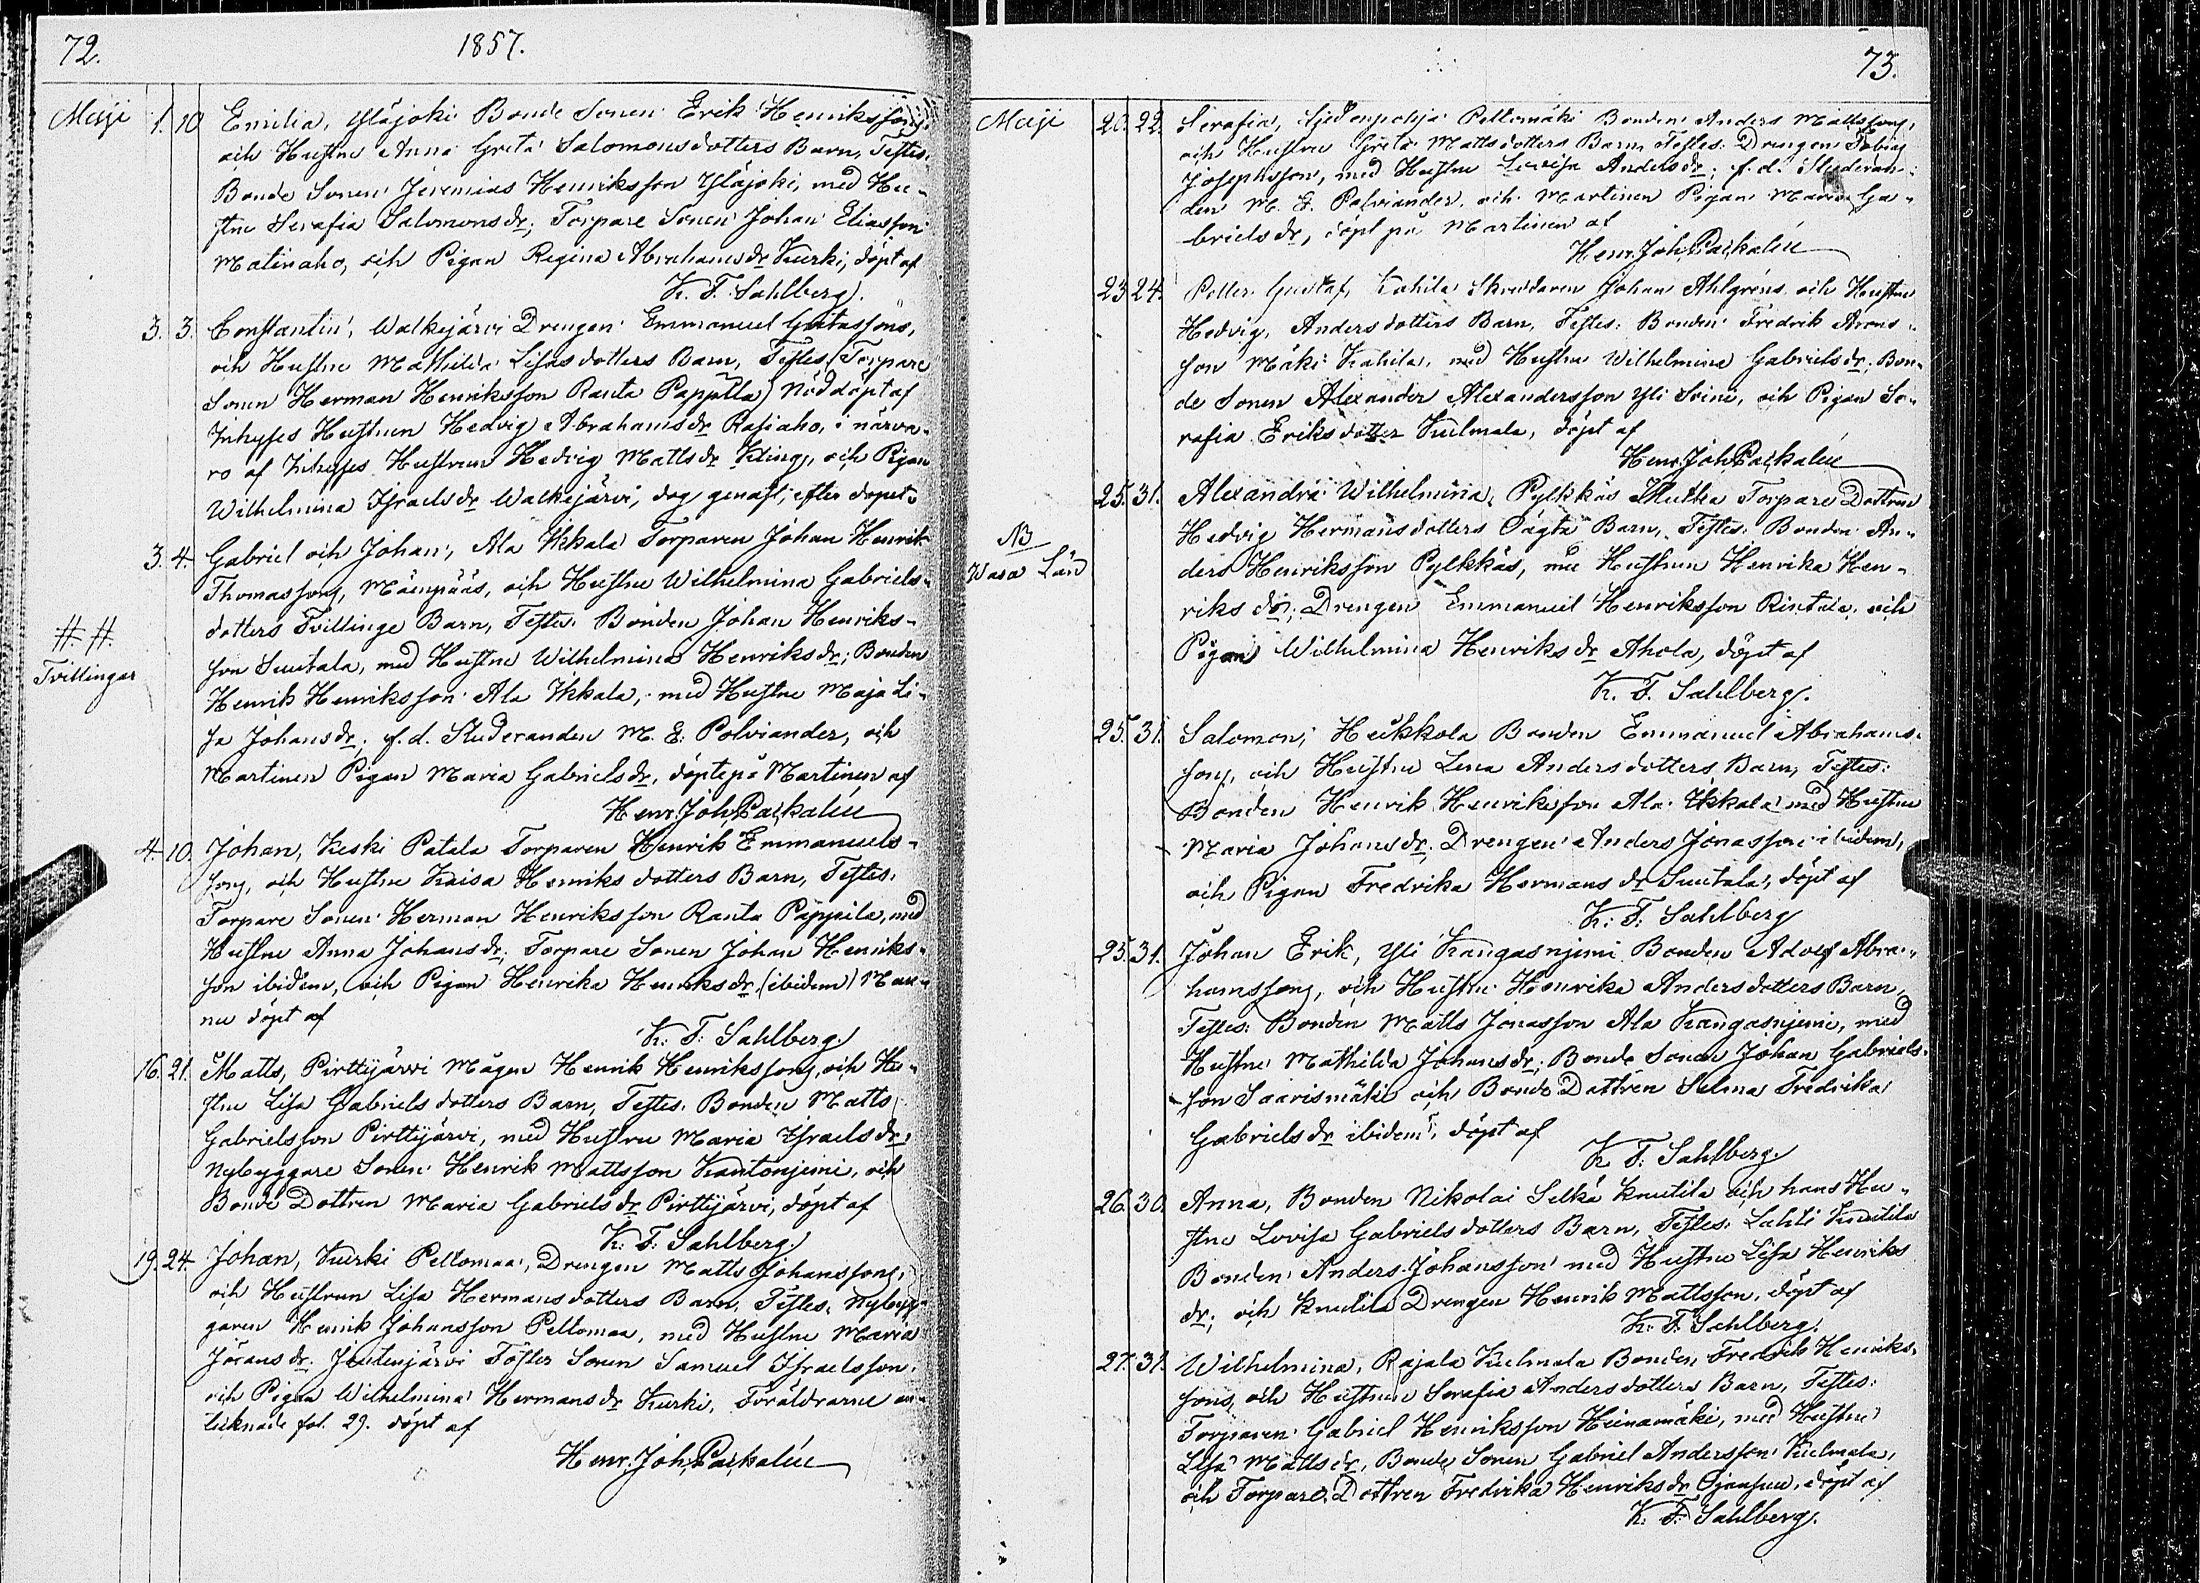 72.
1857.
Maji 1. 10 Emilia, Yläjoki Bonde Sonen Erik Henrikssons,
och Hustru Anna Greta Salomonsdotters Barn, Testes.
Bonde Sonen Jeremias Henriksson Yläjoki, med Hu-
stru Serafia Salomonsdr; Torpare Sonen Johan Eliasson
Matinaho, och Pigan Regina Abrahamsdr Kurki, döpt af
K. F. Sahlberg.
3. 3. Constantin, Walkejärvi Drengen Emmanuel Gustafssons,
och Hustru Mathilda Lisasdotters Barn, Testes (Torpare
Sonen Herman Henriksson Ranta Pappila) Nöddöpt af
Inhyses Hustrun Hedvig Abrahamsdr Rasiaho, i närva-
ro af Inhyses Hustrun Hedvig Mattsdr Kling, och Pigan
Wilhelmina Israelsdr Walkejärvi, dog genast efter dopet.
3. 4. Gabriel och Johan, Ala Ikkala Torparen Johan Henrik
Thomassons, Mäenpääs, och Hustru Wilhelmina Gabriels-
dotters Tvillinge Barn, Testes. Bonden Johan Henriks-
# #.
Tvillingar
son Suutala, med Hustru Wilhelmina Henriksdr; Bonden
Henrik Henriksson Ala Ikkala, med Hustru Maja Li-
sa Johansdr; f.d. Studeranden M. E. Polviander, och
Martinen Pigan Maria Gabrielsdr, döpte på Martinen af
Henr. Joh. Paskalin
4. 10. Johan, Keski Patala Torparen Henrik Emmanuels-
sons, och Hustru Kaisa Henriksdotters Barn, Testes.
Torpare Sonen Herman Henriksson Ranta Pappila, med
Hustru Anna Johansdr; Torpare Sonen Johan Henriks-
son ibidem, och Pigan Henrika Henriksdr (ibidem) Man-
nu döpt af
K. F. Sahlberg.
16. 21. Matts, Pirttijärvi Mågen Henrik Henrikssons, och Hu-
stru Lisa Gabrielsdotters Barn, Testes. Bonden Matts
Gabrielsson Pirttijärvi, med Hustru Maria Israelsdr;
Nybyggare Sonen Henrik Mattsson Kantoniemi, och
Bonde Dottren Maria Gabrielsdr Pirttijärvi, döpt af
K. F. Sahlberg.
19. 24. Johan, Kurki Peltomaa, Drengen Matts Johanssons,
och Hustrun Lisa Hermansdotters Barn, Testes. Nybyg-
garen Henrik Johansson Peltomaa, med Hustru Maria
Göransdr; Joutenjärvi Foster Sonen Samuel Israelsson,
och Pigan Wilhelmina Hermansdr Kurki, Föräldrarne an-
tecknade fol. 29. döpt af
Henr. Joh. Paskalin
73.
Maji 20. 22. Serafia, Peltomäki Bonden Anders Mattssons,
och Hustru Greta Mattsdotters Barn, Testes. Drengen Tobias
Josephsson, med Hustru Lovisa Andersdr; f.d. Studeran-
den M. E. Polviander, och Martinen Pigan Maria Ga-
brielsdr, döpt på Martinen af
Henr. Joh. Paskalin
23. 24. Petter Gustaf, Kahila Skreddaren Johan Ahlgrens och Hustru
Hedvig Andersdotters Barn, Testes. Bonden Fredrik Arons-
son Mäki Kahila, med Hustru Wilhelmina Gabrielsdr; Bon-
de Sonen Alexander Alexandersson Yli Soini, och Pigan Se-
rafia Eriksdotter Kulmala, döpt af
Henr. Joh. Paskalin
25. 31. Alexandra Wilhelmina, Pylkkäs Torpare Dottren
Hedvig Hermansdotters Oägta Barn, Testes. Bonden An-
NB
Wasa Län
ders Henriksson Pylkkäs, med Hustrun Henrika Hen-
riksdr; Drengen Emmanuel Henriksson Rintala, och
Pigan Wilhelmina Henriksdr Ahola, döpt af
K. F. Sahlberg.
25. 31. Salomon, Heikkola Bonden Emmanuel Abrahams-
sons, och Hustru Lena Andersdotters Barn, Testes:
Bonden Henrik Henriksson Ala Ikkala med Hustru
Maria Johansdr; Drengen Anders Jonasson ibidem,
och Pigan Fredrika Hermansdr Suutala, döpt af
K. F. Sahlberg
25. 31. Johan Erik, Yli Kangasniemi Bonden Adolf Abra-
hamssons, och Hustru Henrika Andersdotters Barn,
Testes. Bonden Matts Jonasson Ala Kangasniemi, med
Hustru Mathilda Johansdr; Bonde Sonen Johan Gabriels-
son Saarismäki och Bonde Dottren Selma Fredrika
Gabrielsdr ibidem, döpt af
K. F. Sahlberg.
26. 30. Anna, Bonden Nikolai Selkä Knutila och hans Hu-
stru Lovisa Gabrielsdotters Barn, Testes. Lahti Knutila
Bonden Anders Johansson med Hustru Lisa Henriks
dr; och Knutila Drengen Henrik Mattsson, döpt af
K. F. Sahlberg.
27. 31. Wilhelmina, Rajala Kulmala Bonden Fredrik Henriks-
sons, och Hustrun Serafia Andersdotters Barn, Testes:
Torparen Gabriel Henriksson Heinamäki, med Hustru
Lisa Mattsdr, Bonde Sonen Gabriel Andersson Kulmala,
och Torpare Dottren Fredrika Henriksdr Ojansuu, döpt af
K. F. Sahlberg.